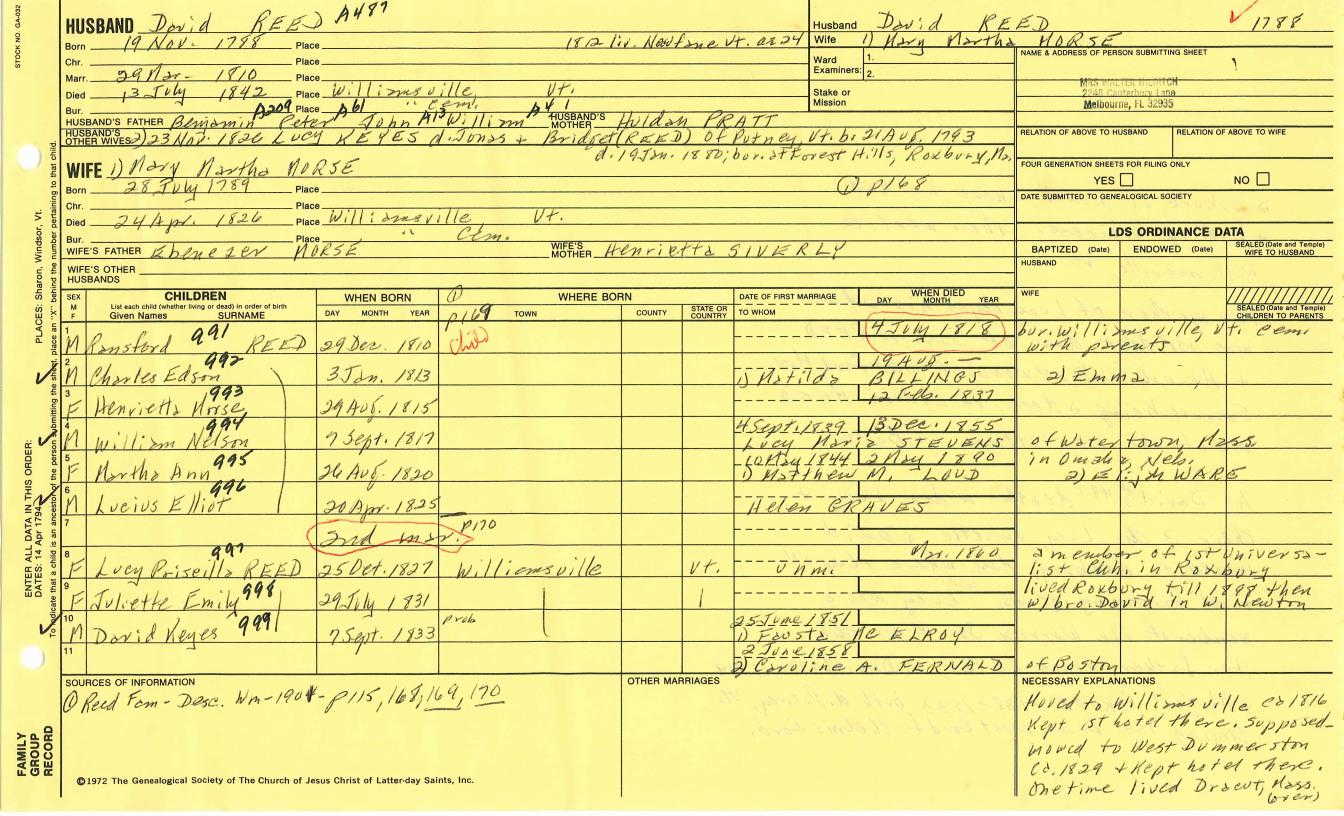 STOCK NO. GA-032
HUSBAND David REED A487
Born 19 Nov. 1788 Place 1812 liv. Newfane Vt. ae 24
Chr. Place
Marr. 29 Mar- 1810 Place
Died 13 July 1842 Place Williamsville, Vt.
Bur. Place " Cem.
HUSBAND'S FATHER Benjamin A209 Peter A61 John A13 William A4 1 HUSBAND'S MOTHER Huldah PRATT
HUSBAND'S OTHER WIVES 2) 23 Nov. 1826 Lucy KEYES d. Jonas + Bridget (REED) of Putney, Vt. b. 21 Aug. 1793
d. 19 Jan. 1880; bur. at Forest Hills, Roxbury, Ma.
Husband David REED 1788
Wife 1) Mary Martha MORSE
Ward Examiners: 1.
2.
Stake or Mission
NAME & ADDRESS OF PERSON SUBMITTING SHEET
MRS WALTER
2246 Canterbury Lane
Melbourne, FL 32935
RELATION OF ABOVE TO HUSBAND RELATION OF ABOVE TO WIFE
FOUR GENERATION SHEETS FOR FILING ONLY
YES NO
DATE SUBMITTED TO GENEALOGICAL SOCIETY
WIFE 1) Mary Martha MORSE
Born 28 July 1789 Place ① p168
Chr. Place
Died 24 Apr. 1826 Place Williamsville, Vt.
Bur. Place " Cem.
WIFE'S FATHER Ebenezer MORSE WIFE'S MOTHER Henrietta SIVERLY
WIFE'S OTHER HUSBANDS
LDS ORDINANCE DATA
BAPTIZED (Date) ENDOWED (Date) SEALED (Date and Temple) WIFE TO HUSBAND
HUSBAND
WIFE
SEALED (Date and Temple) CHILDREN TO PARENTS
SEX M F CHILDREN List each child (whether living or dead) in order of birth Given Names SURNAME WHEN BORN DAY MONTH YEAR WHERE BORN TOWN COUNTY STATE OR COUNTRY DATE OF FIRST MARRIAGE TO WHOM WHEN DIED DAY MONTH YEAR
① p169
1 M Ransford 991 REED 29 Dec. 1810 child 4 July 1818 bur. Williamsville, Vt. Cem. with parents
2 M Charles Edson 992 3 Jan. 1813 1) Matilda BILLINGS 19 Aug. — 2) Emma
3 F Henrietta Morse 993 29 Aug. 1815 12 Feb. 1837
4 M William Nelson 994 7 Sept. 1817 4 Sept. 1839 13 Dec. 1855 Lucy Maria STEVENS of Watertown, Mass
5 F Martha Ann 995 26 Aug. 1820 10 May 1844 2 May 1890 1) Matthew M. LOUD in Omaha, Neb. 2) Elijah WARE
6 M Lucius Elliot 996 20 Apr. 1825 Helen GRAVES
7 2nd mar. p170
8 F Lucy Priscilla REED 997 25 Oct. 1827 Williamsville Vt. unm. Mar. 1860 a member of 1st Universalist Chh. in Roxbury
9 F Juliette Emily 998 29 July 1831 lived Roxbury till 1898 then w/ bro. David in W. Newton
10 M David Keyes 999 7 Sept. 1833 prob 25 June 1851 1) Fausta Mc ELROY
11 2 June 1858 2) Caroline A. FERNALD of Boston
SOURCES OF INFORMATION
① Reed Fam- Desc. Wm-1901- p115, 168, 169, 170
OTHER MARRIAGES
NECESSARY EXPLANATIONS
Moved to Williamsville ca 1816
Kept 1st hotel there. Supposed-
moved to West Dummerston
Ca. 1829 + kept hotel there.
One time lived Dracut, Mass.
(over)
©1972 The Genealogical Society of The Church of Jesus Christ of Latter-day Saints, Inc.
FAMILY GROUP RECORD
ENTER ALL DATA IN THIS ORDER:
DATES: 14 Apr 1794
PLACES: Sharon, Windsor, Vt.
To indicate that a child is an ancestor of the person submitting the sheet, place an "X" behind the number pertaining to that child.